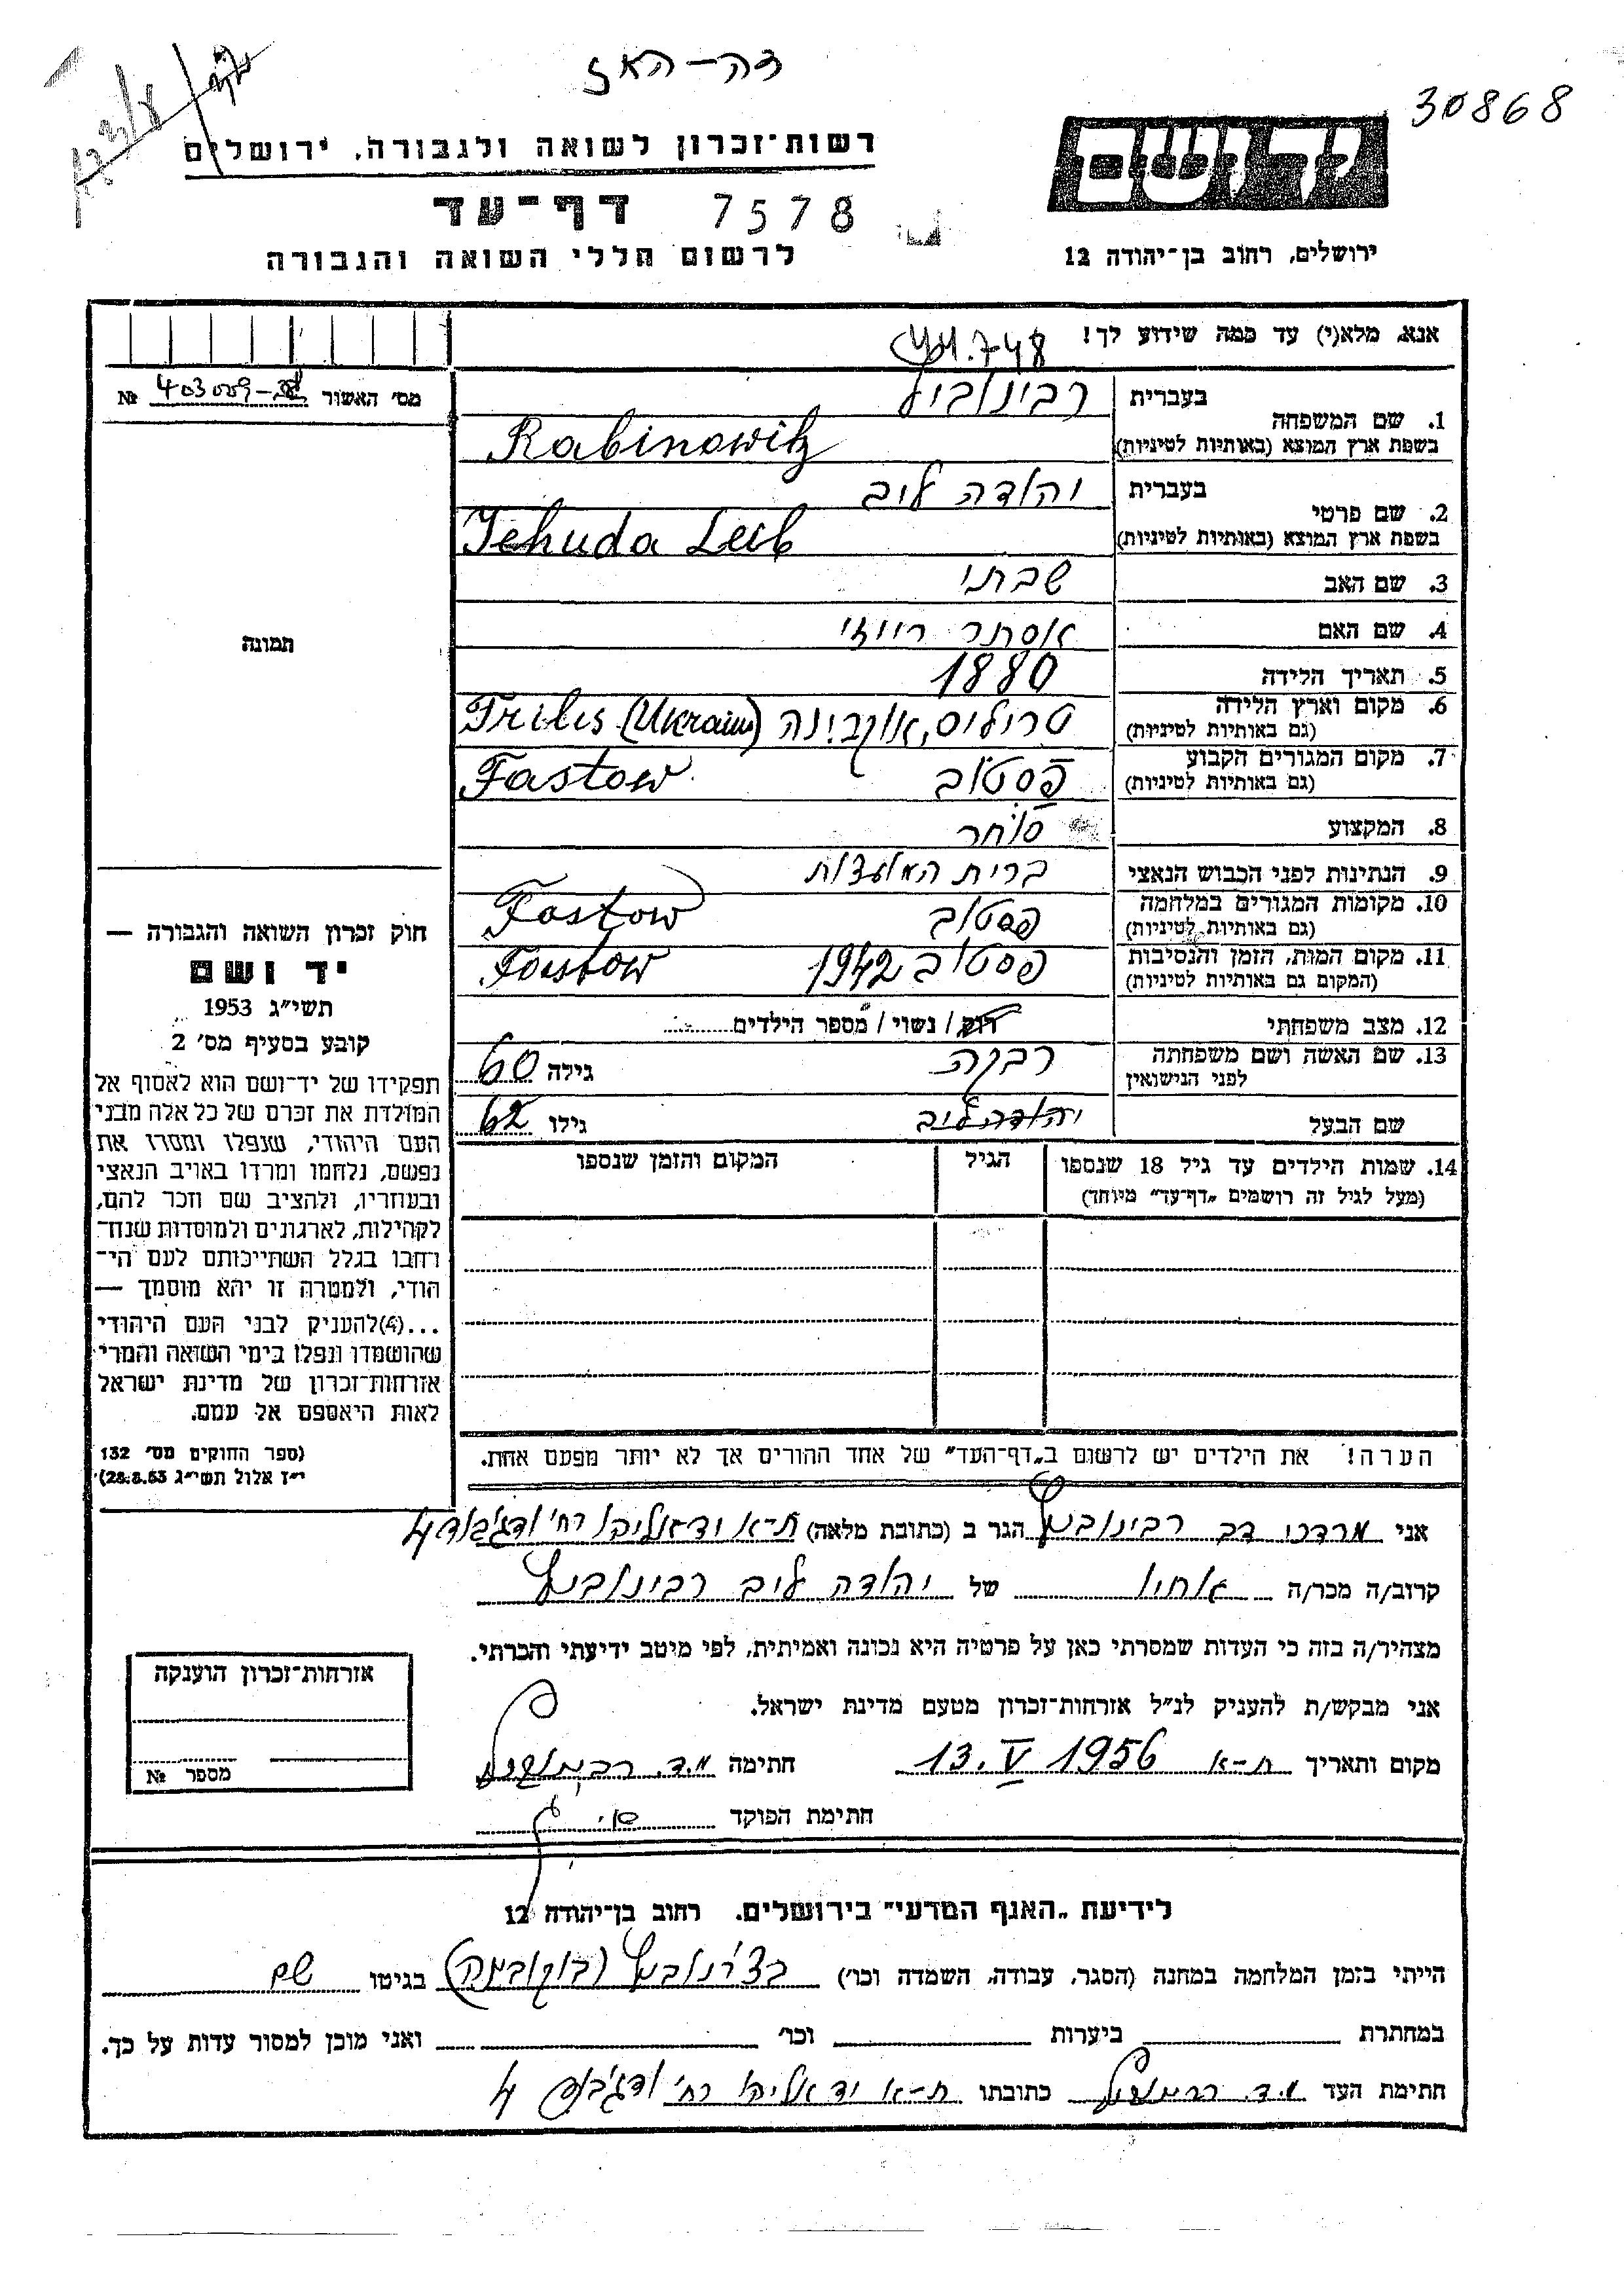 30868
רשות־זכרון לשואה ולגבורה, ירושלים
יד ושם
דף־עד 7578
ירושלים, רחוב בן־יהודה 12
לרשום חללי השואה והגבורה
אנא, מלא(י) עד כמה שידוע לך!
מס' האשור №
1. שם המשפחה בעברית רבינוביץ
בשפת ארץ המוצא (באותיות לטיניות) Rabinowitz
2. שם פרטי בעברית יהודה ליב
בשפת ארץ המוצא (באותיות לטיניות) Jehuda Leib
3. שם האב שבתי
4. שם האם אסתר רייזי
5. תאריך הלידה 1880
6. מקום וארץ הלידה טרילים, אוקרינה Trilis (Ukraine)
(גם באותיות לטיניות)
7. מקום המגורים הקבוע פסטוב Fastow
(גם באותיות לטיניות)
8. המקצוע סוחר
9. הנתינות לפני הכבוש הנאצי ברית המועצות
10. מקומות המגורים במלחמה פסטוב Fastow
(גם באותיות לטיניות)
11. מקום המות, הזמן והנסיבות פסטוב 1942 Fastow
(המקום גם באותיות לטיניות)
12. מצב משפחתי רוק / נשוי / מספר הילדים
13. שם האשה ושם משפחתה רבקה גילה 60
לפני הנישואין
שם הבעל יהודה ליב גילו 62
14. שמות הילדים עד גיל 18 שנספו הגיל המקום והזמן שנספו
(מעל לגיל זה רושמים „דף־עד" מיוחד)
הערה! את הילדים יש לרשום ב„דף־העד" של אחד ההורים אך לא יותר מפעם אחת.
תמונה
חוק זכרון השואה והגבורה —
יד ושם
תשי"ג 1953
קובע בסעיף מס' 2
תפקידו של יד־ושם הוא לאסוף אל
המולדת את זכרם של כל אלה מבני
העם היהודי, שנפלו ומסרו את
נפשם, נלחמו ומרדו באויב הנאצי
ובעוזריו, ולהציב שם וזכר להם,
לקהילות, לארגונים ולמוסדות שנח־
רחבו בגלל השתייכותם לעם הי־
הודי, ולמטרה זו יהא מוסמך —
...(4)להעניק לבני העם היהודי
שהושמדו ונפלו בימי השואה והמרי
אזרחות־זכרון של מדינת ישראל
לאות היאספם אל עמם.
(ספר החוקים מס' 132
י"ז אלול תשי"ג 28.8.53)
אני מרדכי דב רבינוביץ הגר ב (כתובת מלאה) ת-א יד אליהו רח'
קרוב/ה מכר/ה אחיו של יהודה ליב רבינוביץ
מצהיר/ה בזה כי העדות שמסרתי כאן על פרטיה היא נכונה ואמיתית, לפי מיטב ידיעתי והכרתי.
אני מבקש/ת להעניק לנ"ל אזרחות־זכרון מטעם מדינת ישראל.
מקום ותאריך ת-א 13. V 1956 חתימה מ.ד. רבינוביץ
חתימת הפוקד
אזרחות־זכרון הוענקה
מספר №
לידיעת „האגף המדעי" בירושלים, רחוב בן־יהודה 12
הייתי בזמן המלחמה במחנה (הסגר, עבודה, השמדה וכו') בצ'רנוביץ (בוקובינה) בגיטו שם
במחתרת ביערות וכו' ואני מוכן למסור עדות על כך.
חתימת העד מ.ד. רבינוביץ כתובתו ת-א יד אליהו רח'